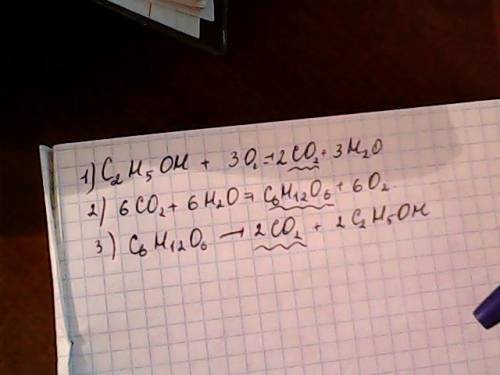 1) C₂H₅OH + 3O₂ → 2CO₂ + 3H₂O
2) 6CO₂ + 6H₂O = C₆H₁₂O₆ + 6O₂
3) C₆H₁₂O₆ → 2CO₂ + 2C₂H₅OH